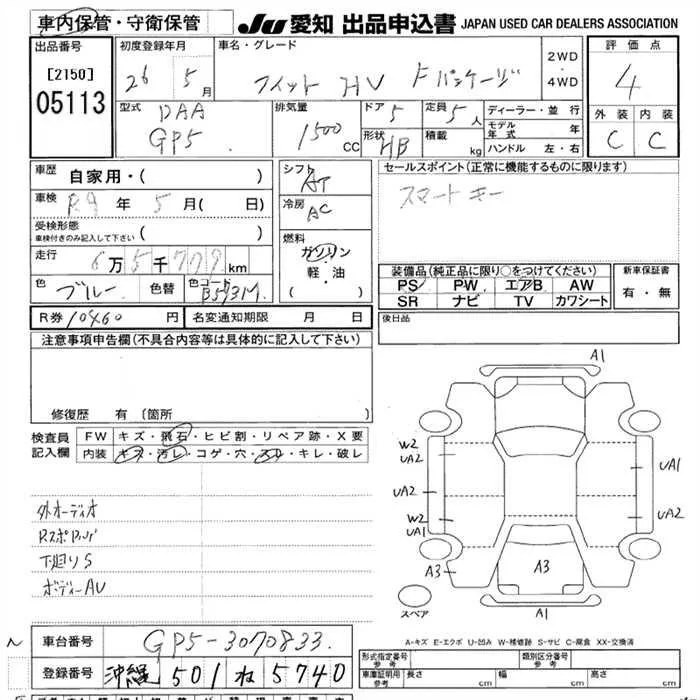 車内保管・守衛保管
JU 愛知 出品申込書 JAPAN USED CAR DEALERS ASSOCIATION
出品番号 [2150] 05113
初度登録年月 26 5月
車名・グレード フィット HV Fパッケージ 2WD・4WD
評価点 4
外装 内装
C C
型式 DAA GP5
排気量 1500cc
ドア 5
形状 HB
定員 5人
積載 kg
ディーラー・並行
モデル年式 年
ハンドル 左・右
車歴 自家用・( )
車検 R9年 5月( 日)
受検形態 車検付きのみ記入して下さい ( )
走行 6万5千709km
色 ブルー 色替 色コード B593M
シフト AT
冷房 AC
燃料 ガソリン
軽・油
( )
セールスポイント(正常に機能するものに限ります)
スマートキー
装備品(純正品に限り○をつけてください)
PS PW エアB AW
SR ナビ TV カワシート
新車保証書
有・無
R券 10460円 名変通知期限 月 日
後日品
注意事項申告欄(不具合内容等は具体的に記入して下さい)
修復歴 有 〔箇所
検査員記入欄
FW キズ・飛石・ヒビ割・リペア跡・X要
内装 キズ・汚レ・コゲ・穴・スレ・キレ・破レ
外オーディオ
RスポRハゲ
下廻りS
ボディーAU
A1
W2
UA2
UA2
W2
UA1
A3
UA1
UA2
A3
A1
スペア
A-キズ E-エクボ U-凹み W-補修跡 S-サビ C-腐食 XX-交換済
車台番号 GP5-3070833
登録番号 沖縄 501 ね 5740
形式指定番号 参考
類別区分番号 参考
車庫証明用 参考 長さ cm 幅 cm 高さ cm